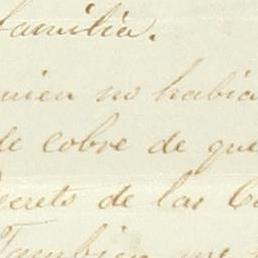 familia.
quien no habia
de cobre de que
decreto de las Co
Tambien me